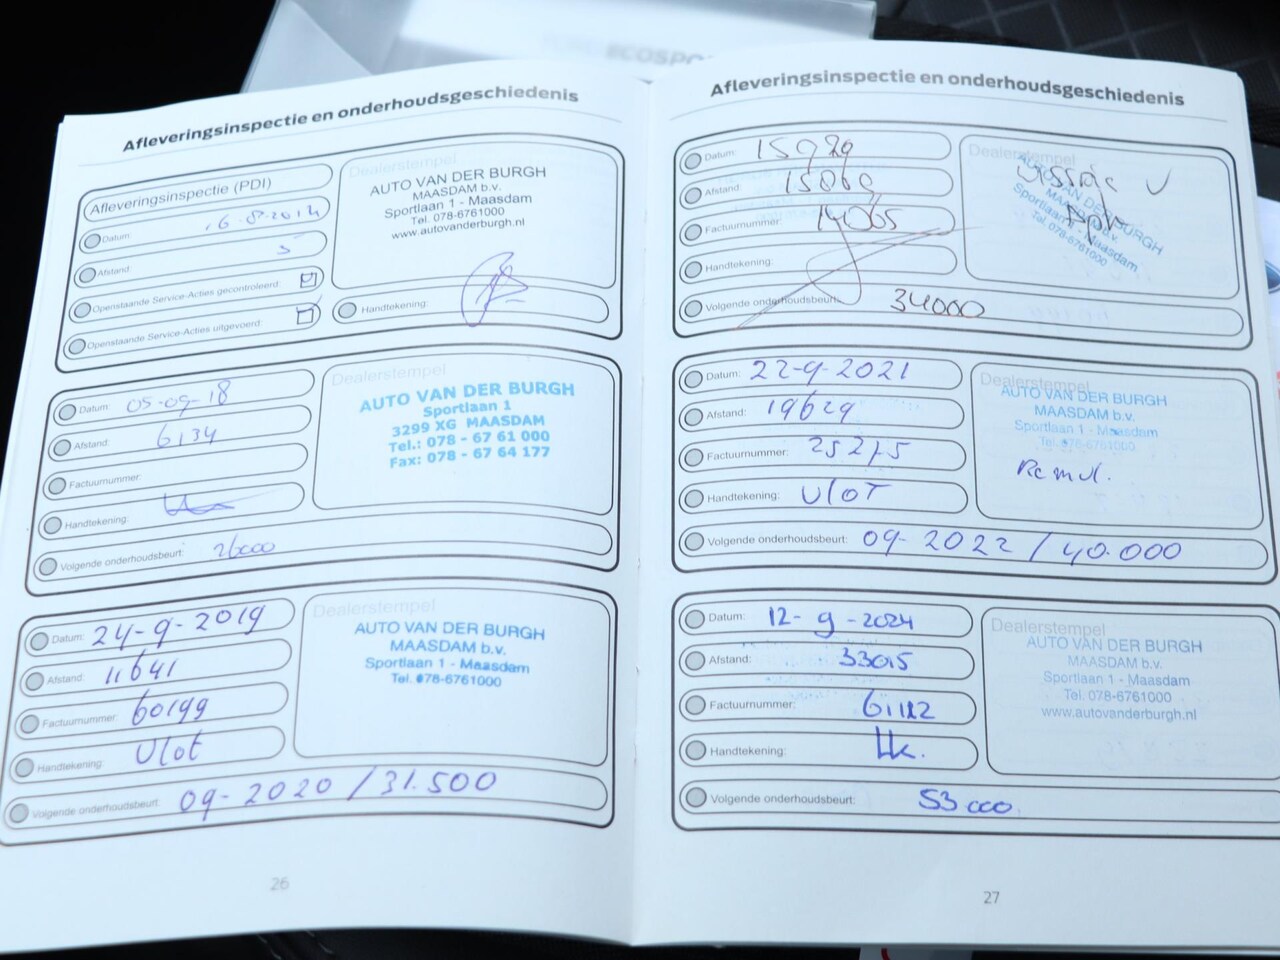 ECOSPO
Afleveringsinspectie en onderhoudsgeschiedenis
Afleveringsinspectie (PDI)
Datum:
Afstand: 5
Openstaande Service-Acties gecontroleerd:
Openstaande Service-Acties uitgevoerd:
Dealerstempel
AUTO VAN DER BURGH
MAASDAM b.v.
Sportlaan 1 - Maasdam
Tel. 078-6761000
www.autovanderburgh.nl
Handtekening:
Datum: 05-09-18
Afstand: 6134
Factuurnummer:
Handtekening:
Volgende onderhoudsbeurt: 26000
Dealerstempel
AUTO VAN DER BURGH
Sportlaan 1
3299 XG MAASDAM
Tel.: 078 - 67 61 000
Fax: 078 - 67 64 177
Datum: 24-9-2019
Afstand: 11641
Factuurnummer: 60199
Handtekening: Vlot
Volgende onderhoudsbeurt: 09-2020 / 31.500
Dealerstempel
AUTO VAN DER BURGH
MAASDAM b.v.
Sportlaan 1 - Maasdam
Tel. 078-6761000
26
Afleveringsinspectie en onderhoudsgeschiedenis
Datum:
Afstand:
Factuurnummer: 14065
Handtekening:
Volgende onderhoudsbeurt: 34000
Dealerstempel
AUTO VAN DER BURGH
MAASDAM b.v.
Sportlaan 1 - Maasdam
Tel. 078-6761000
Datum: 22-9-2021
Afstand: 19629
Factuurnummer: 25275
Handtekening: Vlot
Volgende onderhoudsbeurt: 09-2022 / 40.000
Dealerstempel
AUTO VAN DER BURGH
MAASDAM b.v.
Sportlaan 1 - Maasdam
Tel. 078-6761000
Datum: 12-9-2024
Afstand: 33015
Factuurnummer:
Handtekening:
Volgende onderhoudsbeurt: 53000
Dealerstempel
AUTO VAN DER BURGH
MAASDAM b.v.
Sportlaan 1 - Maasdam
Tel. 078-6761000
www.autovanderburgh.nl
27